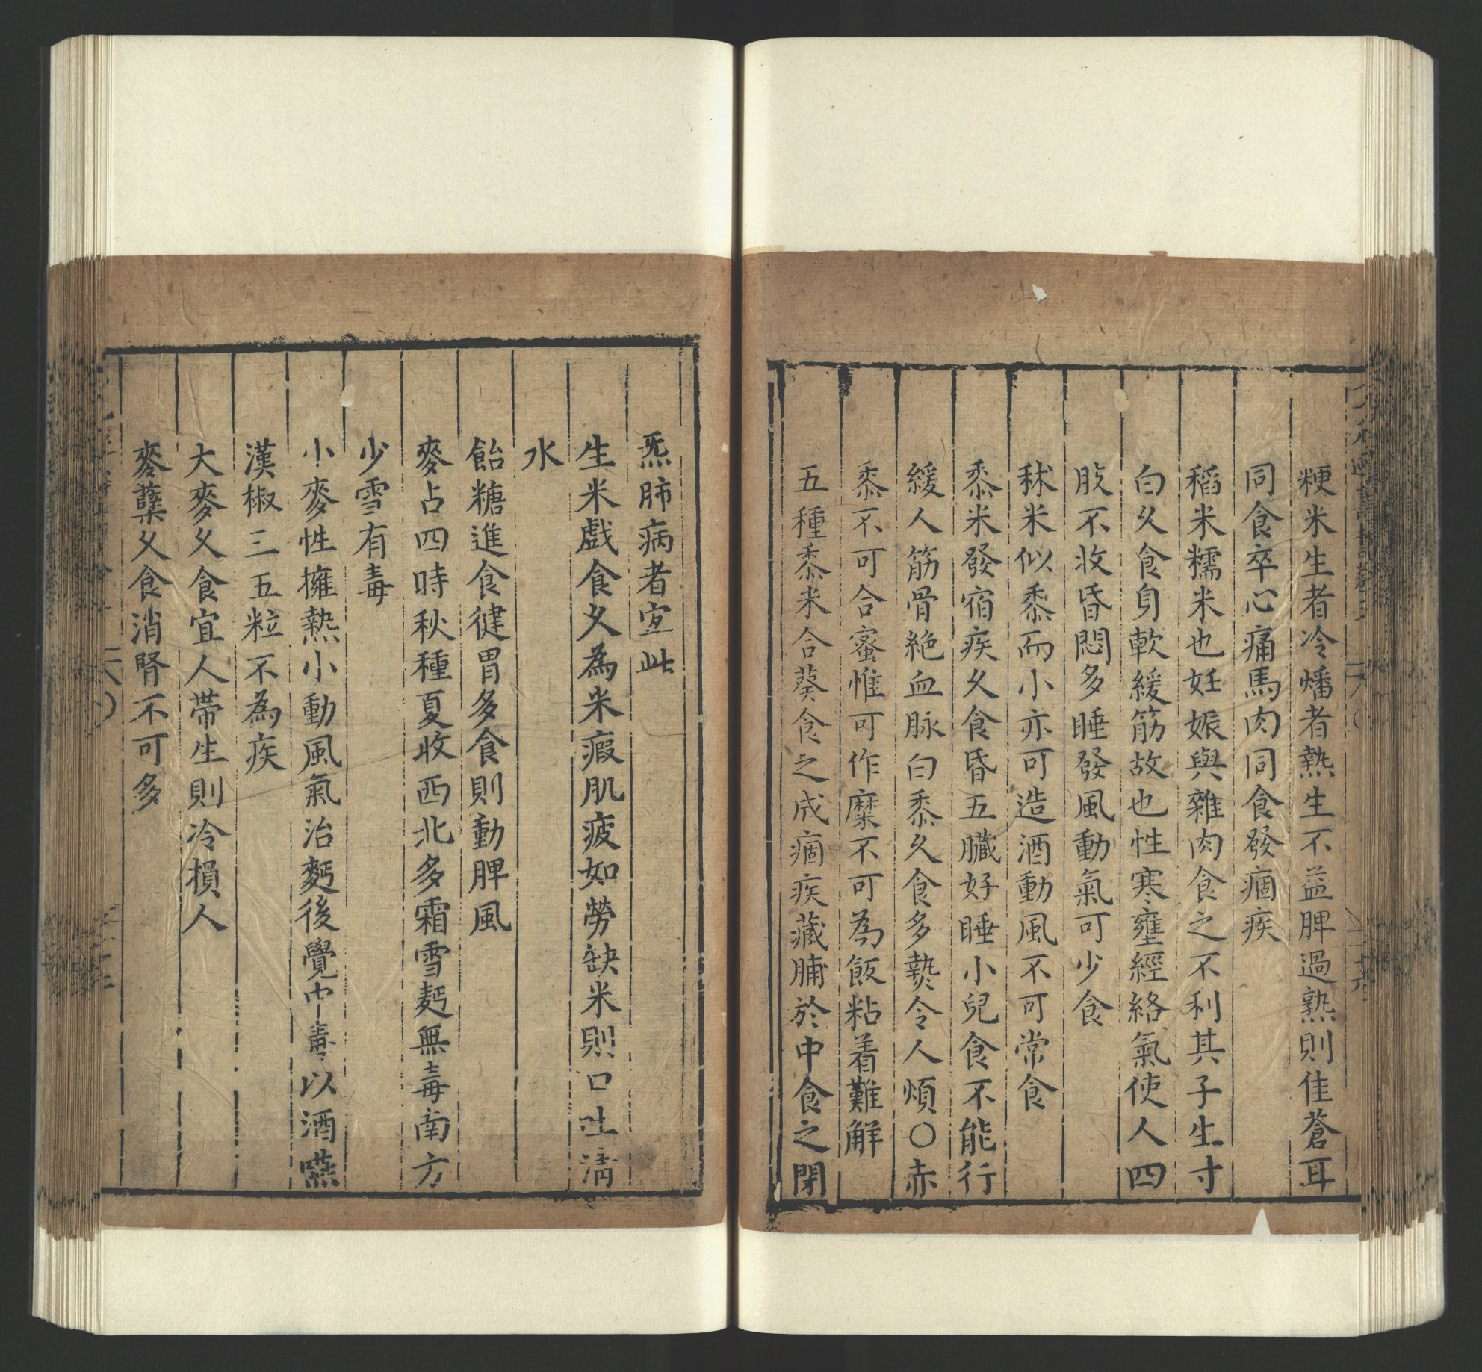 粳米生者冷燔者熱生不益脾過熟則佳蒼耳
同食卒心痛馬肉同食發痼疾
稻米糯米也妊娠與雜肉食之不利其子生寸
白久食身軟緩筋故也性寒壅經絡氣使人四
肢不收昏悶多睡發風動氣可少食
秫米似黍而小亦可造酒動風不可常食
黍米發宿疾久食昏五臟好睡小兒食不能行
緩人筋骨絶血脉白黍久食多𤍠令人煩〇赤
黍不可合蜜惟可作糜不可為飯粘着難解
五種黍米合葵食之成痼疾藏脯於中食之閉
炁肺病者宜此
生米戲食久為米瘕肌疲如勞缺米則口吐清
水
飴糖進食健胃多食則動脾風
麥占四時秋種夏收西北多霜雪麪無毒南方
少雪有毒
小麥性擁熱小動風氣治麪後覺中毒以酒嚥
漢椒三五粒不為疾
大麥久食宜人帶生則冷損人
麥蘗久食消腎不可多